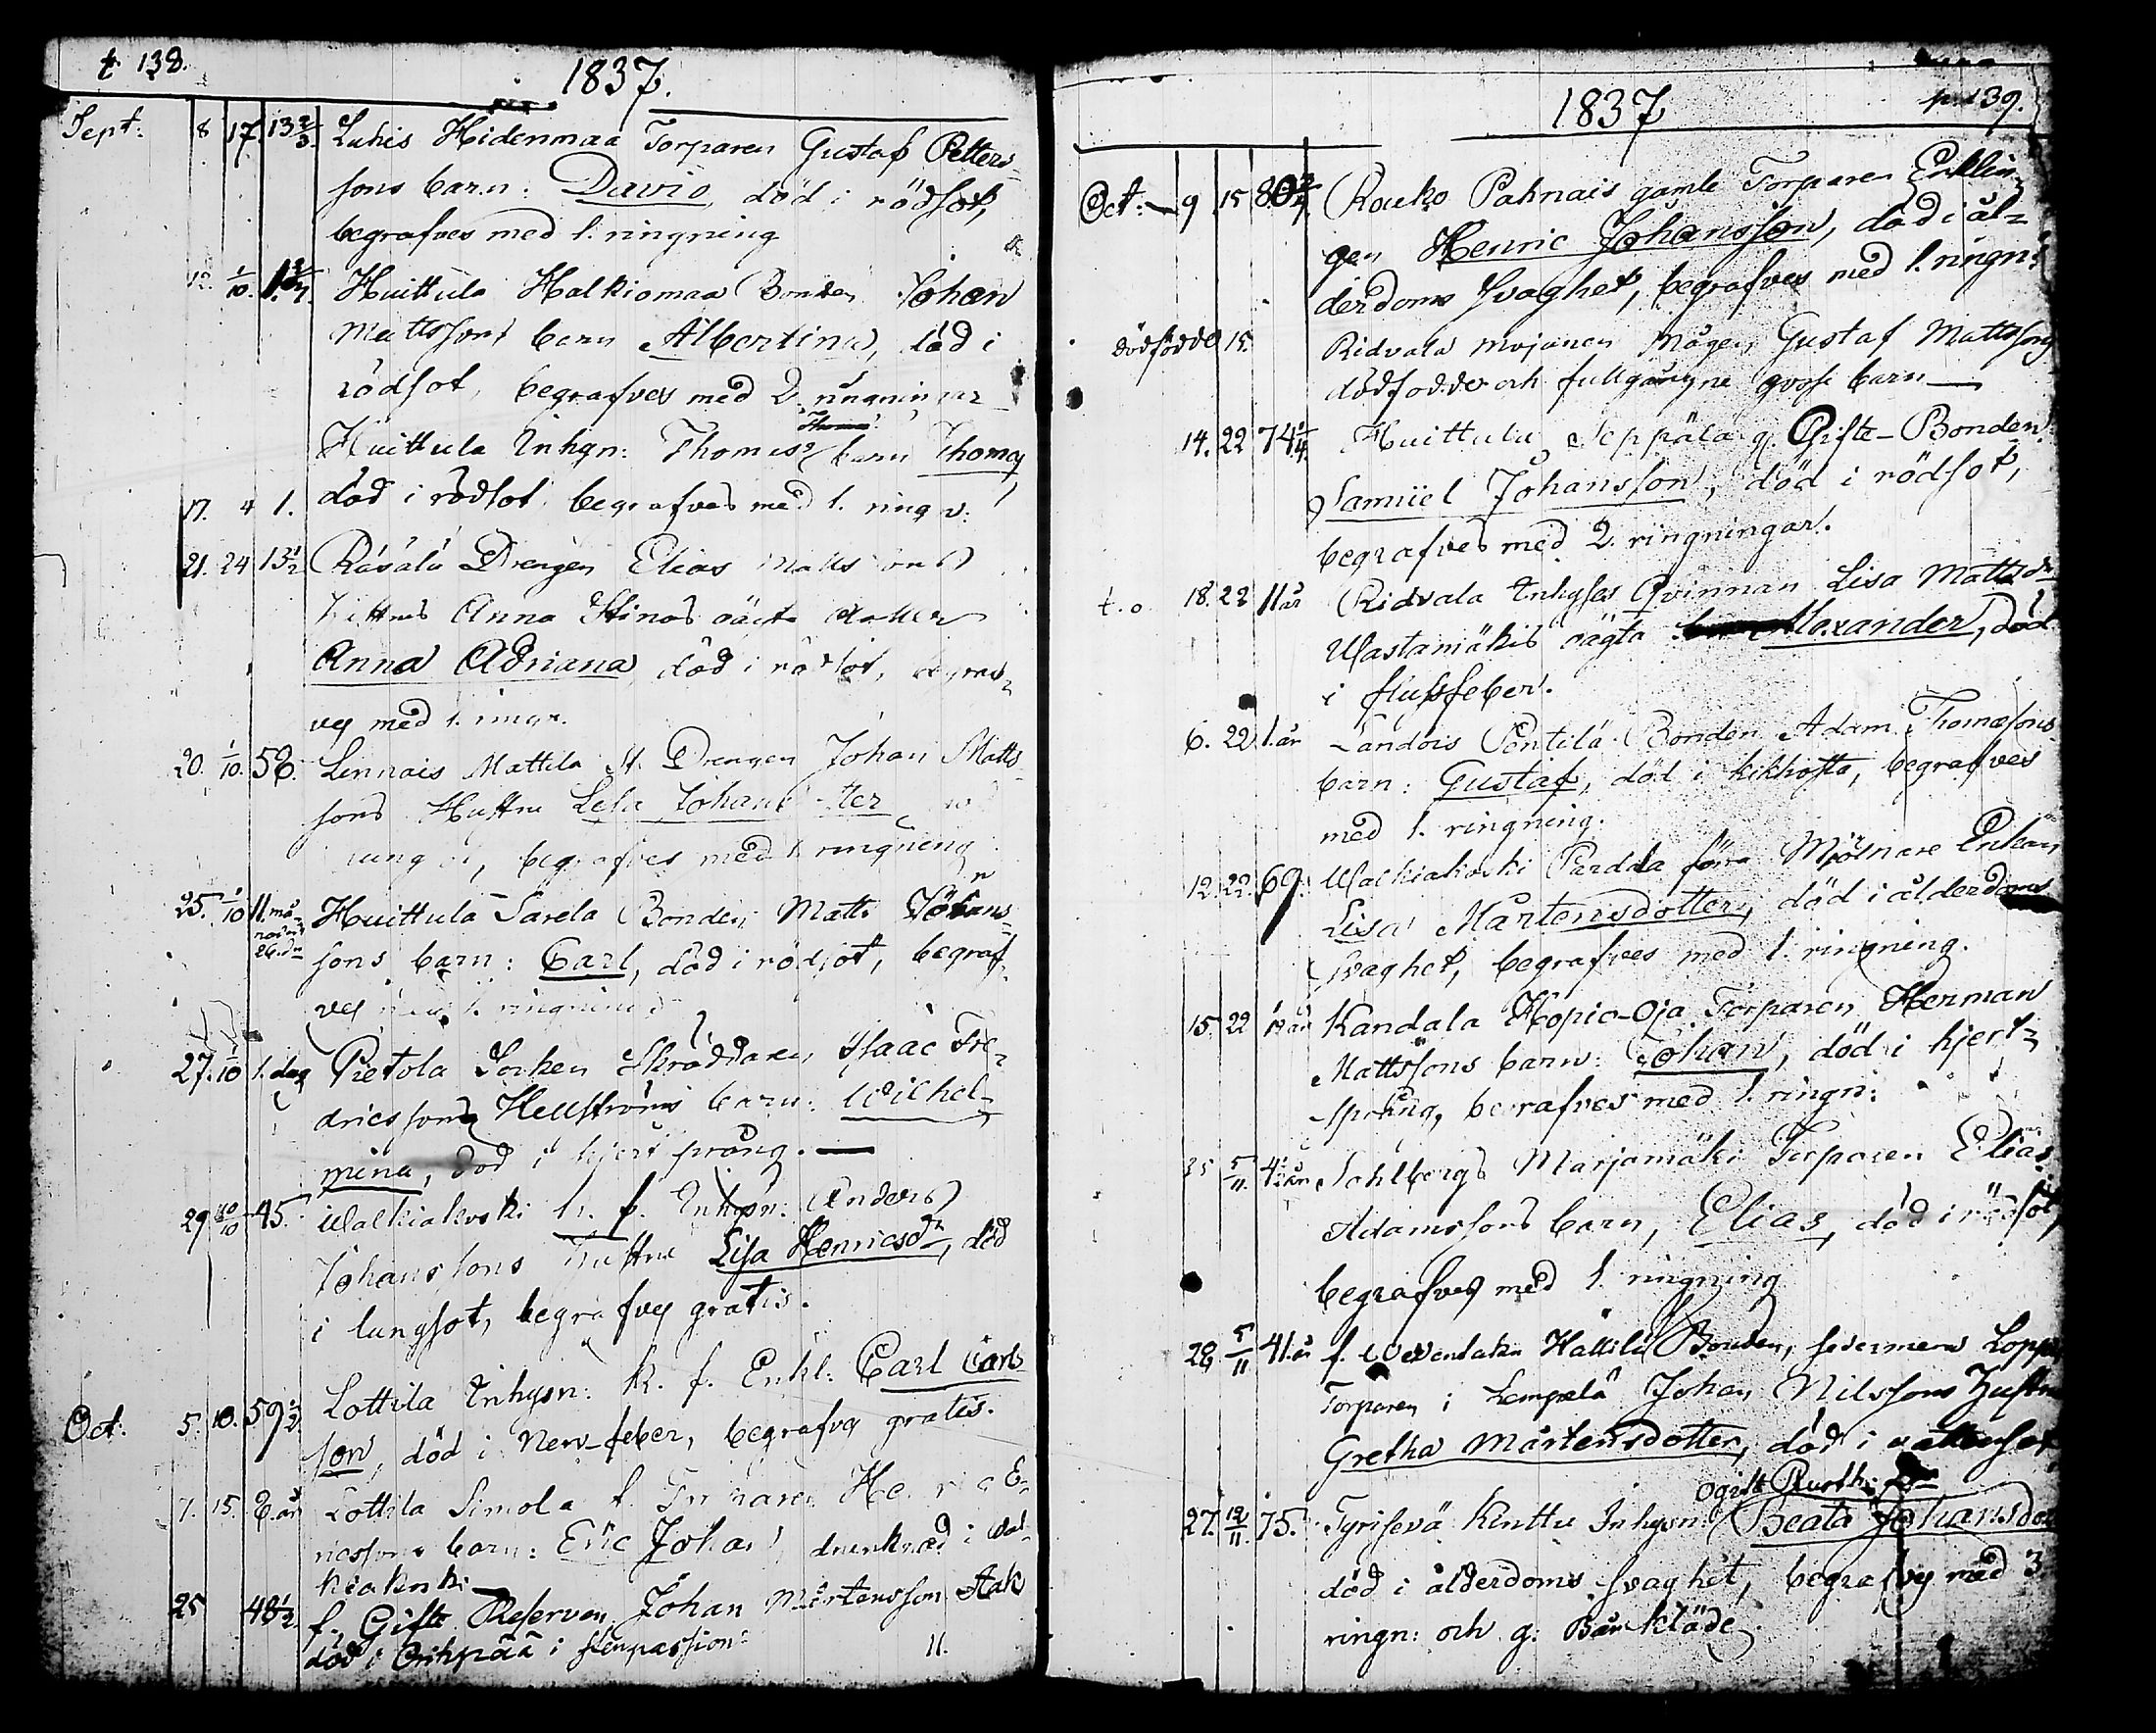 p. 138.
1837.
Sept: 8 17. 13 2/3. Luhis Hidenmaa Torparen Gustaf Petters-
sons barn: David, död i rödsot,
begrafves med 1. ringning
12. 1/10. Huittula Halkiomaa Bonden Johan
Mattssons barn Albertina, död i
rödsot, begrafves med 2 ringningar
Huittula Inhgn: Thomas barn Thomas
17. 4 1. död i rödsot begrafves med 1. ringn:
21. 24 13 1/2 Räsälä Drengen Elias Matts
Anna Stinas oäcta dotter
Anna Adriana död i rödsot, begraf-
ves med 1. ringn.
20. 1/10. 58. Lennais Mattila Drengen Johan Matts-
sons Hustru Lisa Johansdotter
begrafves med 1 ringning
25. 1/10 11. må-
nader
26. dr Huittula Sarela Bonden Matts Johans-
sons barn: Carl, död i rödsot, begraf-
ves med 1. ringning
27. 1/10 1. dag Pietola Socken Skräddaren Isaac Fre-
dricssons Hellströms barn: Wilhel-
mina, död i hjertsprång.
29 10/10 45. Walkiakoski k. f. Inhysn: Anders
Johanssons Hustru Lisa Henricsdr, död
i lungsot, begrafves gratis.
Oct: 5. 10. 59 1/2. Lottila Inhysn: k. f. Enkl: Carl Carls
son, död i Nerv-feber, begrafves gratis.
7. 15. 8. år Lottila Simola f. Torparen Henric E-
ricssons barn: Eric Johan, drunknad i Val-
kiakoski
25 48 1/2 f. Gifte Reserven Johan Mårtensson Stak
död i Orihpää i stenpassion:
11.
1837
p. 139.
Oct: 9 15 80 Rouko Pahnais gamle Torparen Enklin-
gen Henric Johansson, död i ål-
derdoms svaghet, begrafves med 1. ringn:
dödfödde 15. Ridvala Mojanen Mågen Gustaf Mattssons
dödfödde och fullgångne gosse barn
14. 22 74 Huittula Seppälä g. Gifte-Bonden
Samuel Johansson, död i rödsot,
begrafves med 2. ringningar.
t. o 18. 22 11 år Ridvala Inhyses Qvinnan Lisa Mattsdr
Wastamäkis oägta Alexander, död
i flussfeber.
6. 22 1. år Landois Pentilä Bonden Adam Thomassons
barn: Gustaf, död i kikhosta, begrafves
med 1. ringning.
12. 22. 69. Walkiakoski Pardda förra Mjölnare Enkan
Lisa Mårtensdotter, död i ålderdoms
svaghet, begrafves med 1. ringning.
15. 22 år Kandala Kopio-Oja Torparen Herman
Mattssons barn: Johan, död i hjert-
språng, begrafves med 1. ringn:
25 5/11. 4 1/2 år Sahlbergs Marjamäki Torparen Elias
Adamssons barn, Elias, död i rödsot,
begrafves med 1. ringning
28 5/11 41. år f. Hattila Bonden, sedermera
Torparen i Lempälä Johan Nilssons Hustru
Gretha Mårtensdotter, död i vattusot
Ogift
27. 12/11. 75. Tyrisevä Kenttu Inhysn: Beata Johansdotter
död i ålderdoms svaghet, begrafves med 3
ringn: och g: Bårkläde